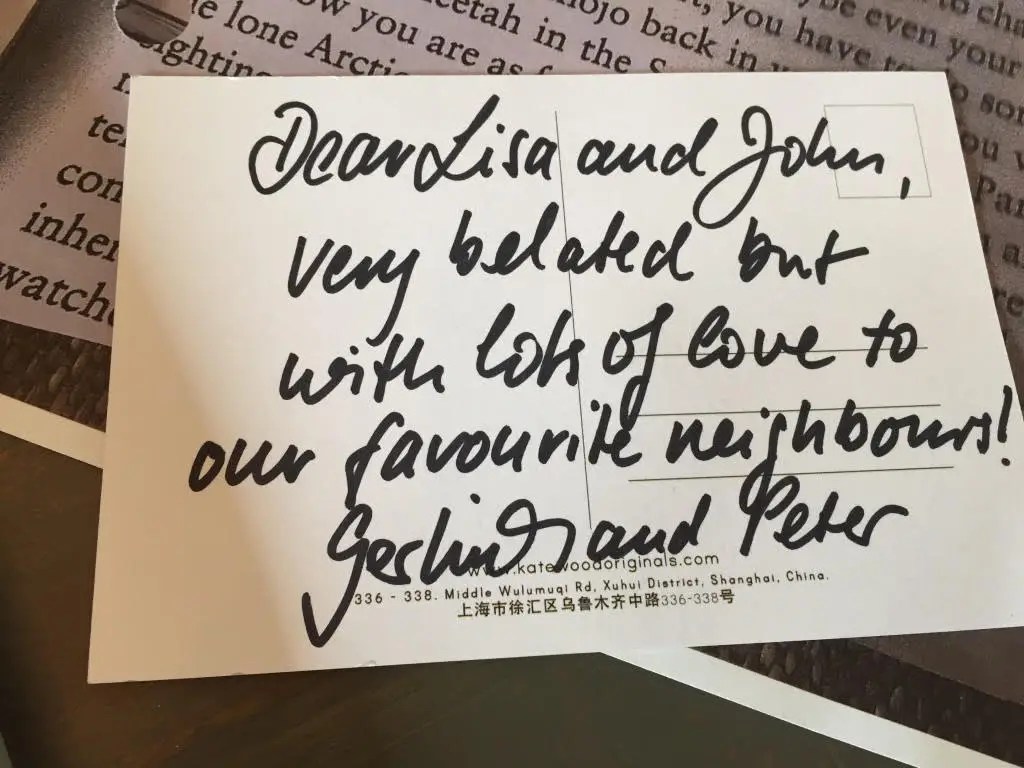 eetah in the S
ojo back in
, you have to
be even your
to cha
ow you are as f
e lone Arctic
ighting
son
ou
Par
con
inher
watche
Dear Lisa and John,
very belated but
with lots of love to
our favourite neighbours!
Gerlind and Peter
www.katewoodoriginals.com
336 - 338. Middle Wulumuqi Rd, Xuhui District, Shanghai, China.
上海市徐汇区乌鲁木齐中路336-338号